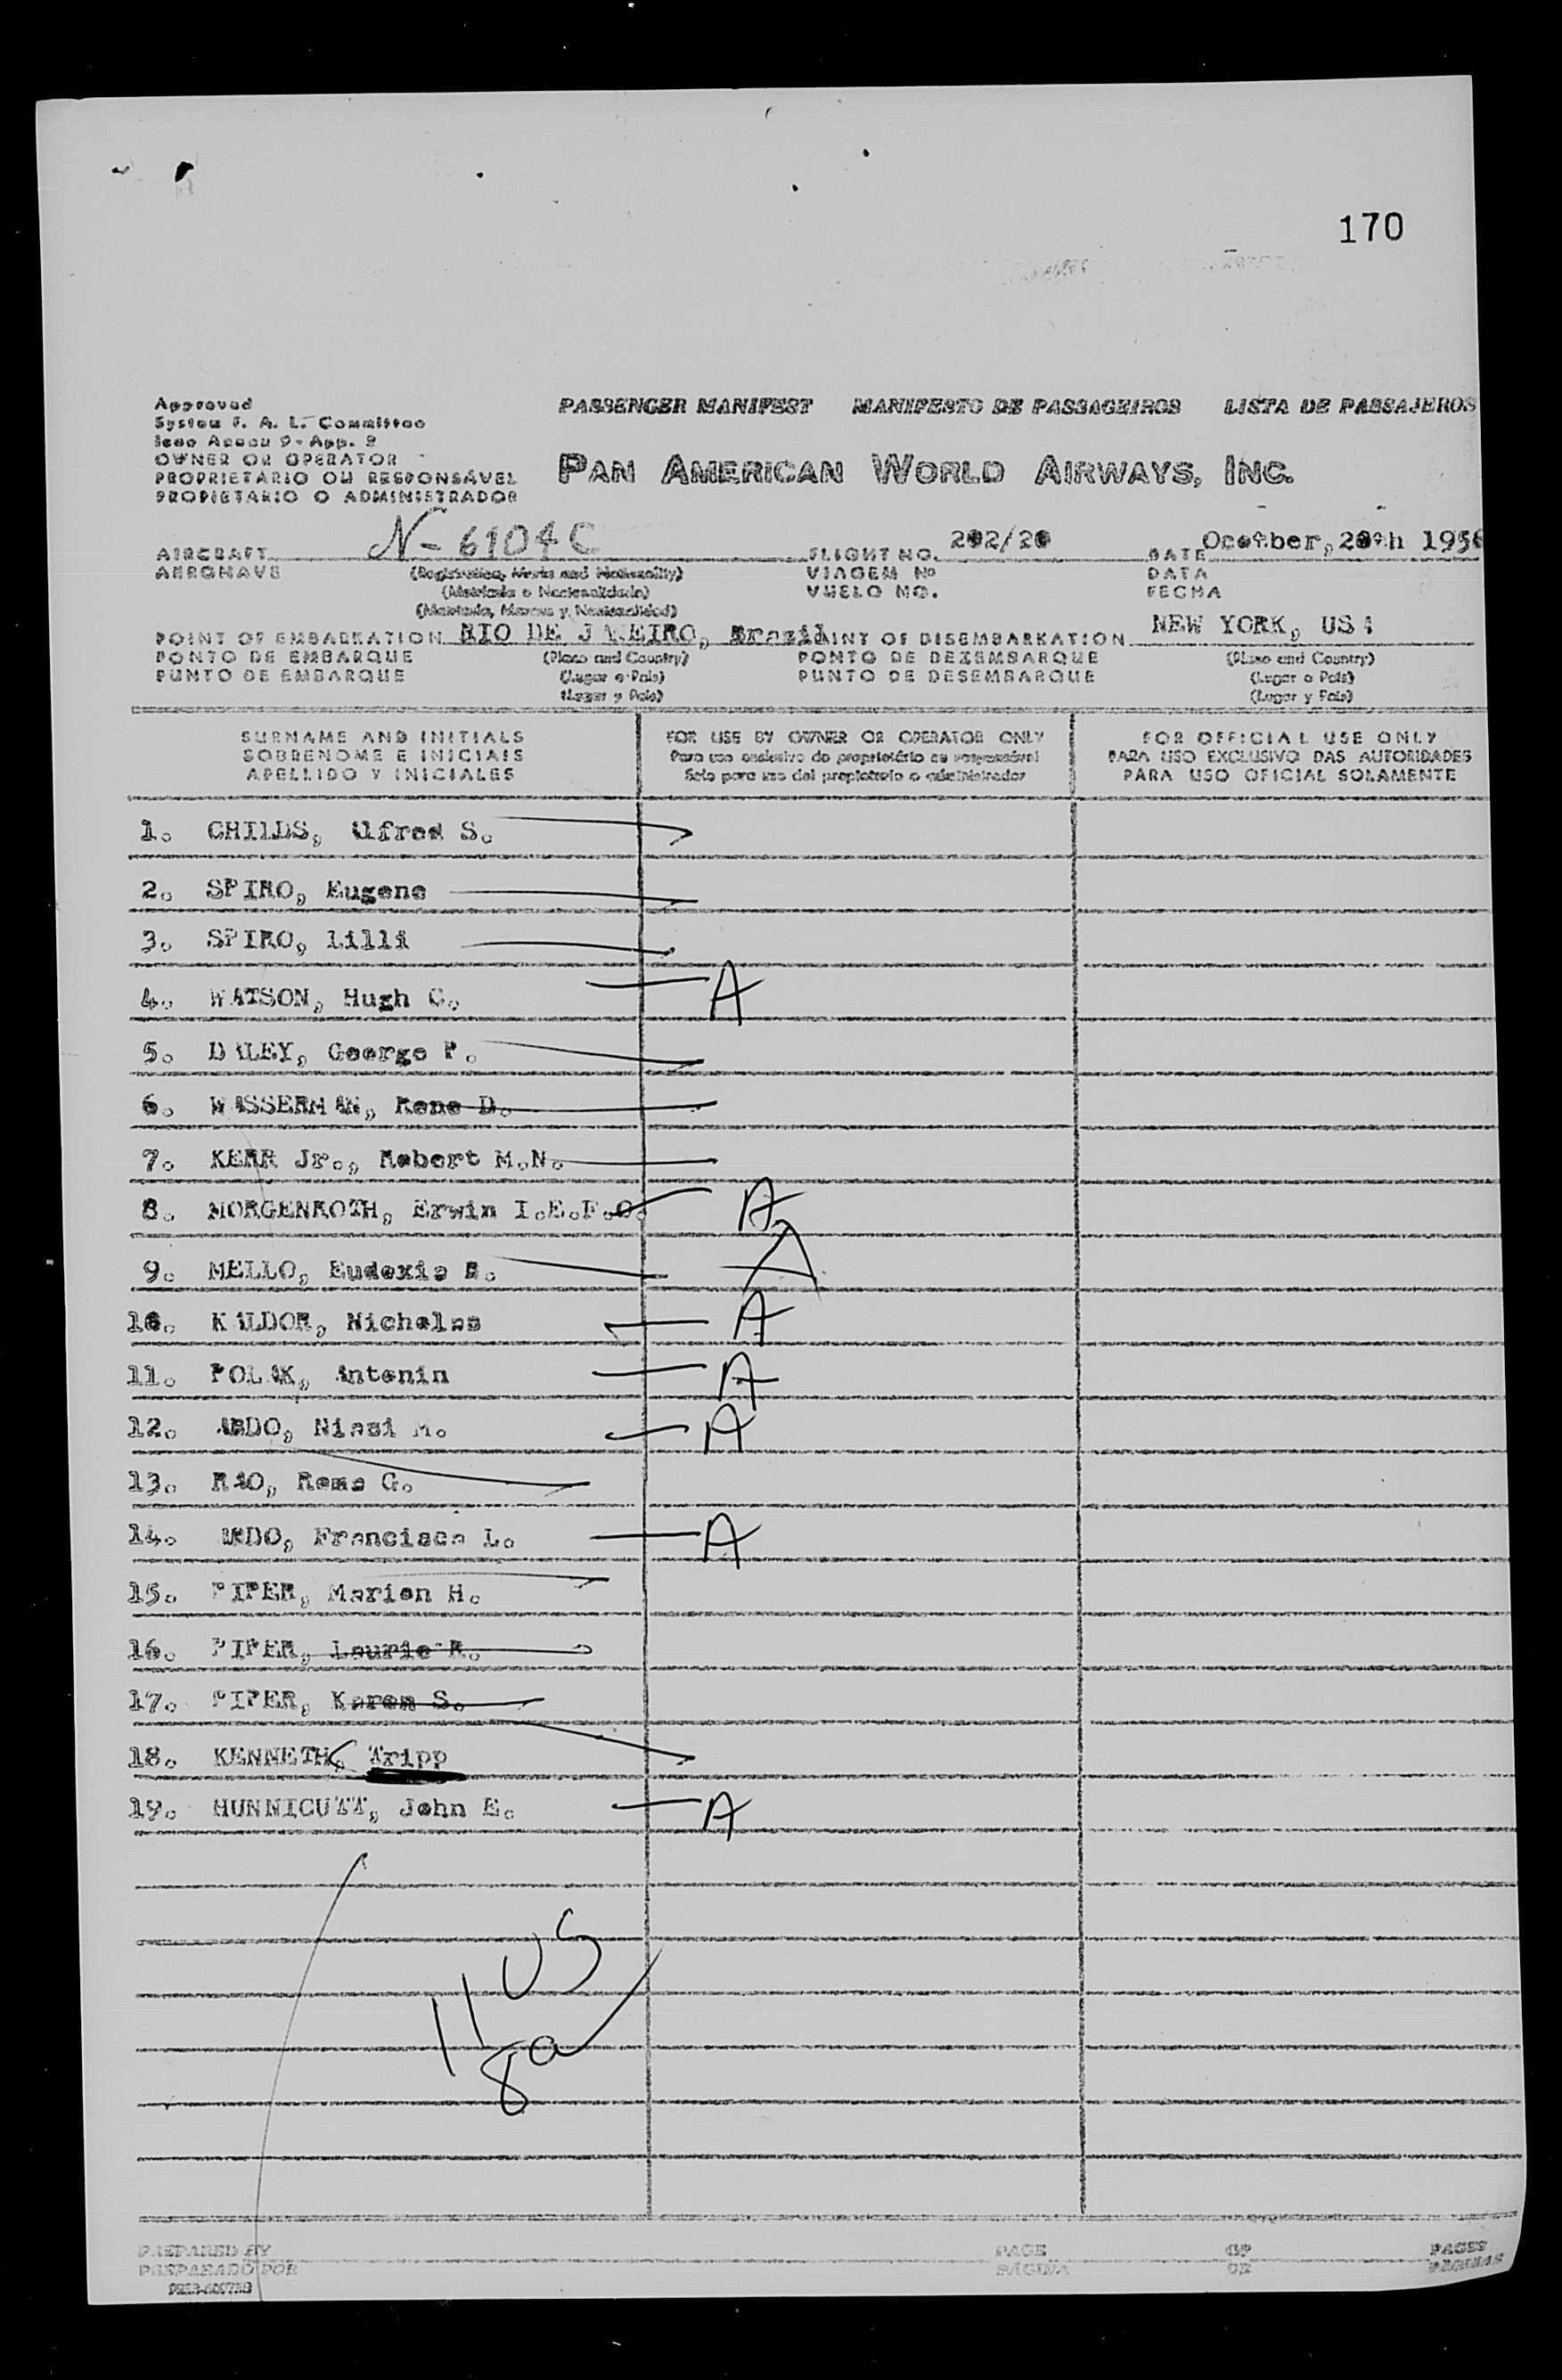 170
Approved
System F. A. L. Committee
Icao Annex 9 - App. 2
PASSENGER MANIFEST MANIFESTO DE PASSAGEIROS LISTA DE PASSAJEROS
OWNER OR OPERATOR
PROPRIETARIO OU RESPONSÁVEL
PROPIETARIO O ADMINISTRADOR
PAN AMERICAN WORLD AIRWAYS, INC.
AIRCRAFT N-6104C FLIGHT NO. 202/20 DATE October, 20th 1956
AERONAVE (Registration, Marks and Nationality) VIAGEM Nº DATA
(Matrícula e Nacionalidade) VUELO NO. FECHA
(Matrícula, Marcas y Nacionalidad)
POINT OF EMBARKATION RIO DE JANEIRO, Brazil POINT OF DISEMBARKATION NEW YORK, USA
PONTO DE EMBARQUE (Place and Country) PONTO DE DEZEMBARQUE (Place and Country)
PUNTO DE EMBARQUE (Lugar e Pais) PUNTO DE DESEMBARQUE (Lugar o Pais)
(Lugar y Pais) (Lugar y Pais)
SURNAME AND INITIALS FOR USE BY OWNER OR OPERATOR ONLY FOR OFFICIAL USE ONLY
SOBRENOME E INICIAIS Para uso exclusivo do proprietário ou responsável PARA USO EXCLUSIVO DAS AUTORIDADES
APELLIDO Y INICIALES Solo para uso del propietario o administrador PARA USO OFICIAL SOLAMENTE
1. CHILDS, Alfred S.
2. SPIRO, Eugene
3. SPIRO, Lilli
4. WATSON, Hugh C. A
5. DALEY, George P.
6. WASSERMAN, Rene D.
7. KERR Jr., Robert M.N.
8. MORGENROTH, Erwin I.E.F.O. A
9. MELLO, Eudoxia A
10. KALDOR, Nicholas A
11. POLAK, Antonin A
12. ABDO, Niasi M. A
13. RAO, Rama G.
14. ABDO, Francisca L. A
15. PIPER, Marion H.
16. PIPER, Laurie R.
17. PIPER, Karen S.
18. KENNETH, Tripp
19. HUNNICUTT, John E. A
11 US
8a
PREPARED BY PAGE OF PAGES
PREPARADO POR PÁGINA DE PÁGINAS